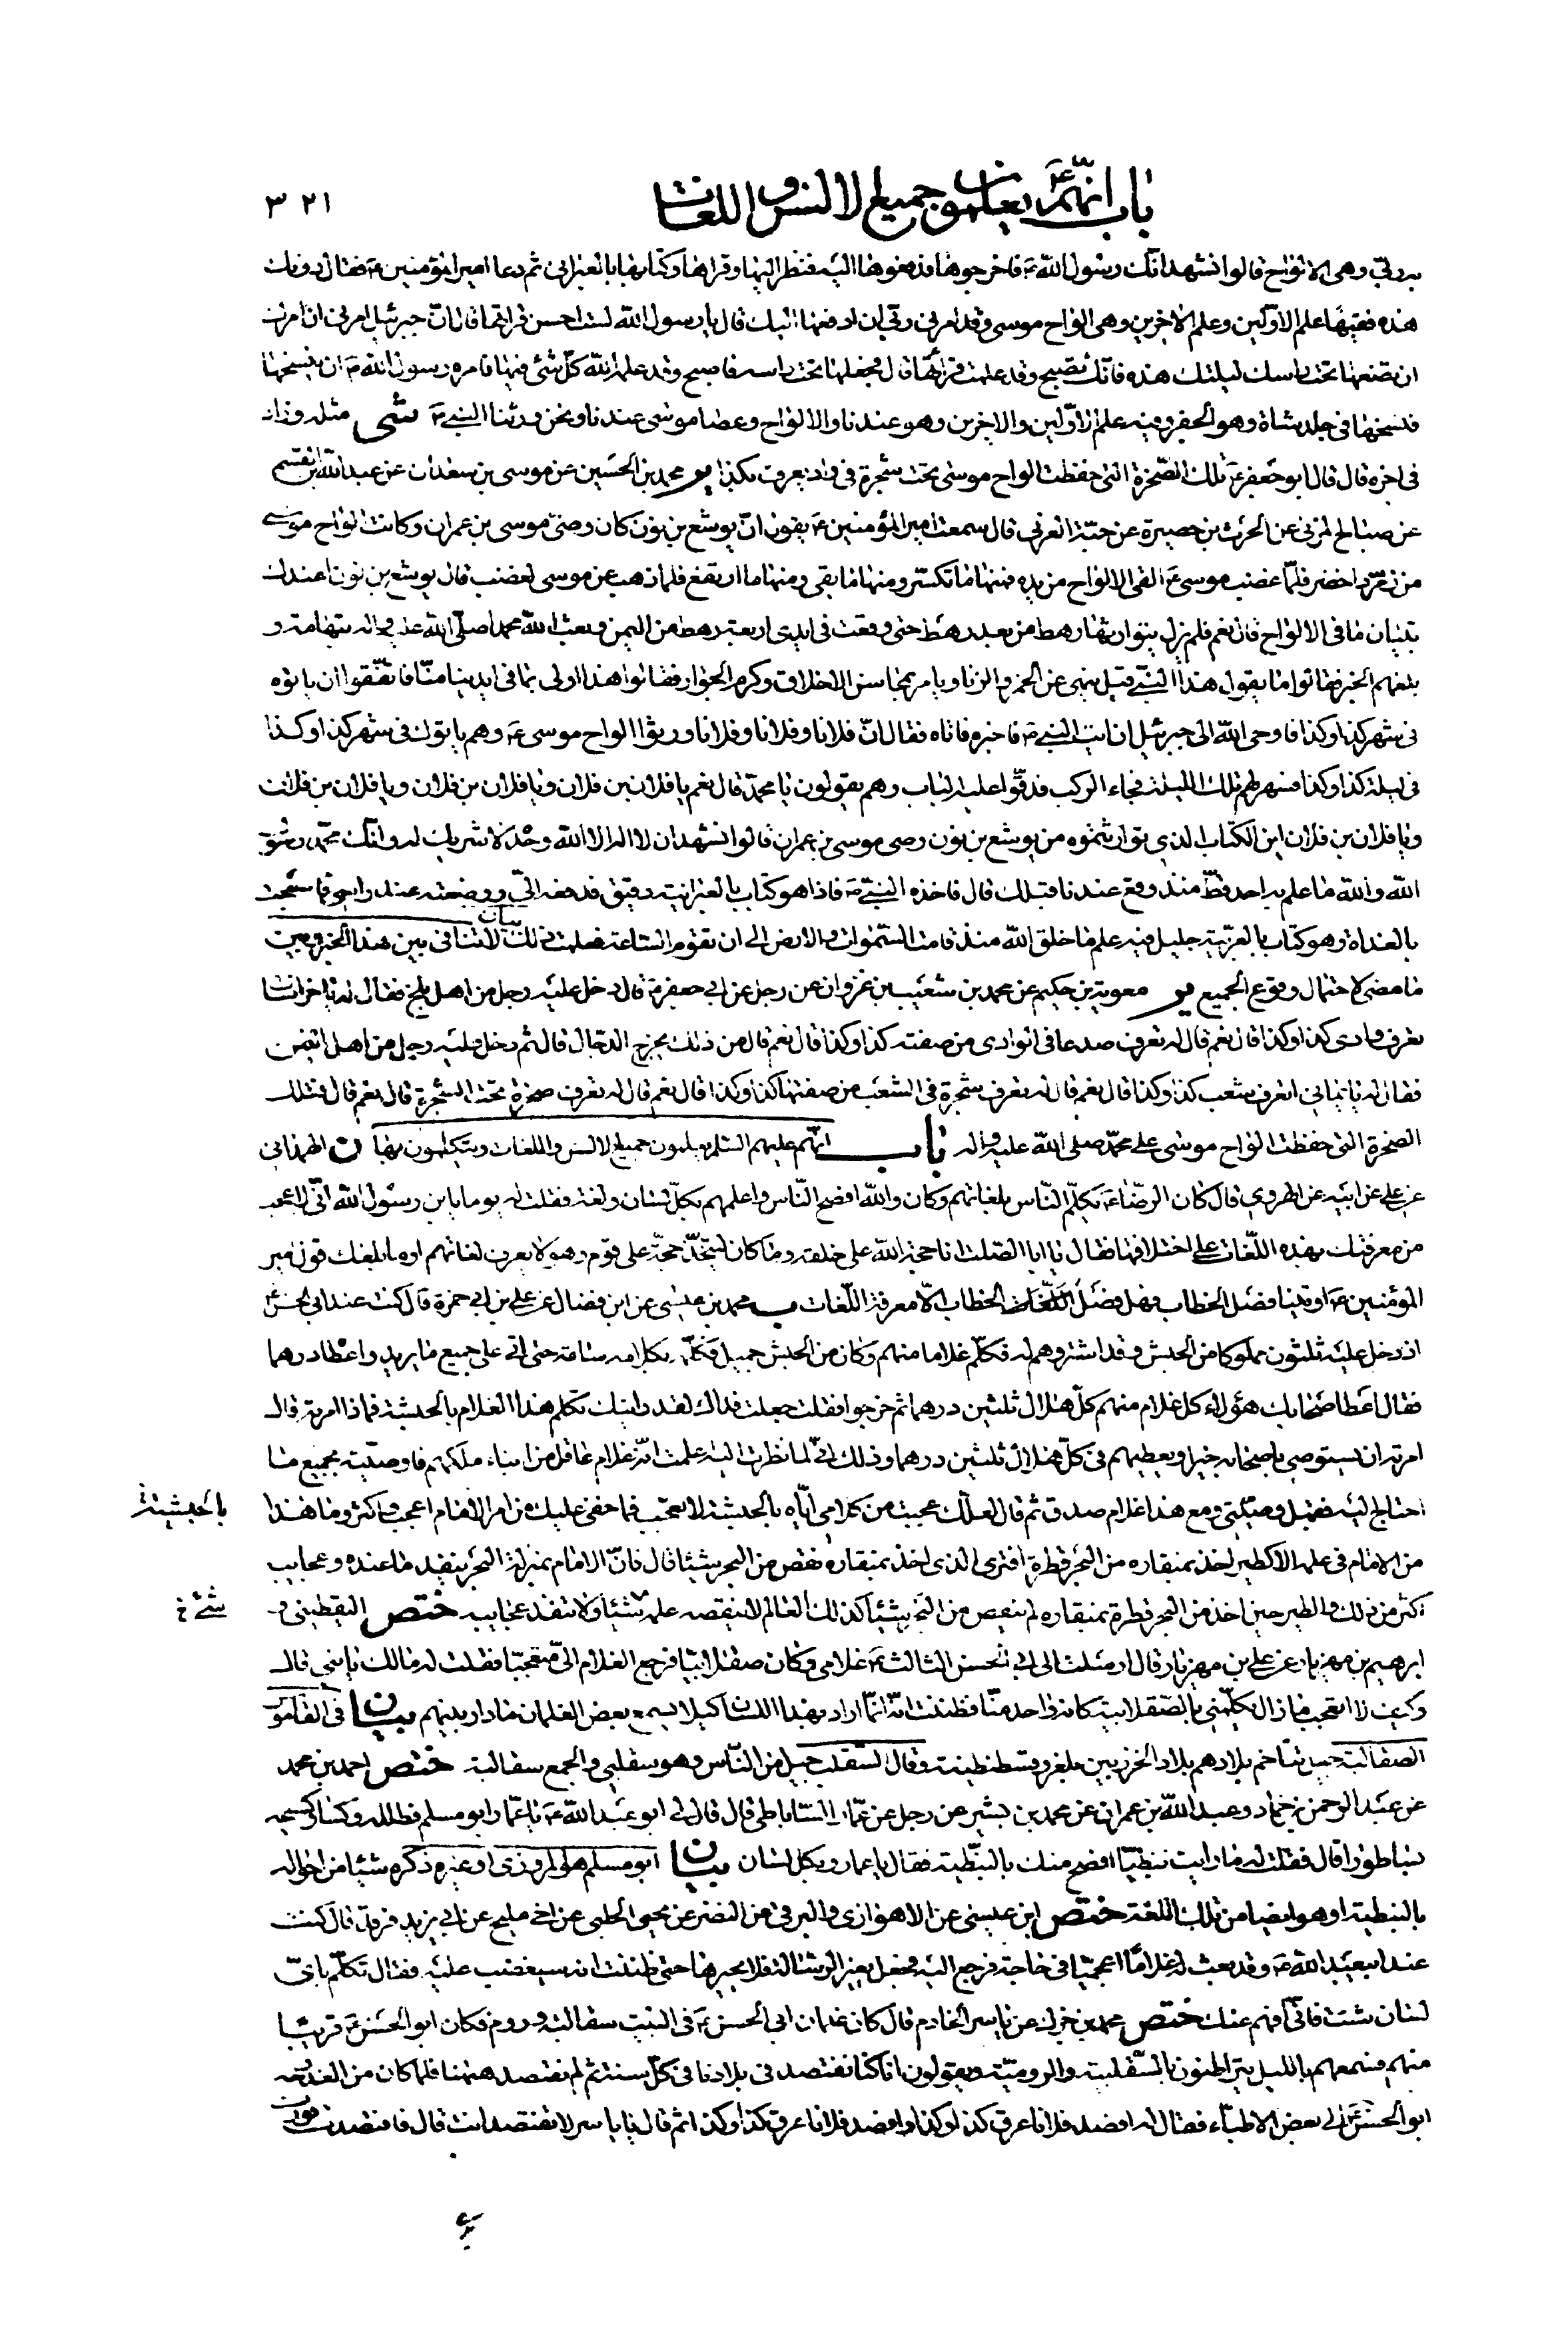 باب انهم ع يعلمون جميع الالسن و اللغات
٣٢١
به ربي وهي الالواح قالوا نشهد انك رسول الله ص فاخرجوها فدفعوها اليه فنظر اليها وقراها وكتابها بالعبراني ثم دعا امير المؤمنين ع فقال دونك
هذه ففيها علم الاولين وعلم الاخرين وهي الواح موسى وقد امرني ربي ان ادفعها اليك قال يا رسول الله لست احسن قراءتها قال ان جبرئيل امرني ان امرك
ان تضعها تحت راسك ليلتك هذه فانك تصبح وقد علمت قراءتها قال فجعلها تحت راسه فاصبح وقد علمه الله كل شئ فيها فامره رسول الله ص ان ينسخها
فنسخها في جلد شاة وهو الجفر وفيه علم الاولين والاخرين وهو عندنا والالواح وعصا موسى عندنا ونحن ورثنا النبي ص شى مثله وزاد
في اخره قال قال ابو جعفر ع تلك الصخرة التي حفظت الواح موسى تحت شجرة في واد يعرف بكذا ير محمد بن الحسين عن موسى بن سعدان عن عبد الله بن القسم
عن صباح المزني عن الحرث بن حصيرة عن حبة العرني قال سمعت امير المؤمنين ع يقول ان يوشع بن نون كان وصي موسى بن عمران وكانت الواح موسى
من زمرد اخضر فلما غضب موسى ع القى الالواح من يده فمنها ما تكسر ومنها ما بقي ومنها ما ارتفع فلما ذهب عن موسى الغضب قال يوشع بن نون اعندك
تبيان ما في الالواح قال نعم فلم يزل يتوارثها رهط من بعد رهط حتى وقعت في ايدي اربعة رهط من اليمن وبعث الله محمدا صلى الله عليه واله بتهامة و
بلغهم الخبر فقالوا ما يقول هذا النبي قيل ينهى عن الخمر والزنا ويامر بمحاسن الاخلاق وكرم الجوار فقالوا هذا اولى بما في ايدينا منا فاتفقوا ان ياتوه
في شهر كذا وكذا فاوحى الله الى جبرئيل ان ايت النبي ص فاخبره فاتاه فقال ان فلانا وفلانا وفلانا وفلانا ورثوا الواح موسى ع وهم ياتوك في شهر كذا وكذا
في ليلة كذا وكذا فسهر لهم تلك الليلة فجاء الركب فدقوا عليه الباب وهم يقولون يا محمد قال نعم يا فلان بن فلان ويا فلان بن فلان ويا فلان بن فلان
ويا فلان بن فلان اين الكتاب الذي توارثتموه من يوشع بن نون وصي موسى بن عمران قالوا نشهد ان لا اله الا الله وحده لا شريك له وانك محمد رسول
الله والله ما علم به احد قط منذ وقع عندنا قبلك قال فاخذه النبي ص فاذا هو كتاب بالعبرانية دقيق فدفعه الي ووضعته عند راسي فاصبحت
بالغداة وهو كتاب بالعربية جليل فيه علم ما خلق الله منذ قامت السموات والارض الى ان تقوم الساعة فعلمت ذلك بيان لا تنافي بين هذا الخبر وبين
ما مضى لاحتمال وقوع الجميع ير معوية بن حكيم عن محمد بن شعيب بن غزوان عن رجل عن ابي جعفر ع قال دخل عليه رجل من اهل بلخ فقال له يا خراساني
تعرف وادي كذا وكذا قال نعم قال له تعرف صدعا في الوادي من صفته كذا وكذا قال نعم قال من ذلك يخرج الدجال قال ثم دخل عليه رجل من اهل اليمن
فقال له يا يماني اتعرف شعب كذا وكذا قال نعم قال له تعرف شجرة في الشعب من صفتها كذا وكذا قال نعم قال له تعرف صخرة تحت الشجرة قال نعم قال فتلك
الصخرة التي حفظت الواح موسى على محمد صلى الله عليه واله باب انهم عليهم السلم يعلمون جميع الالسن واللغات ويتكلمون بها ن الهمداني
عن علي عن ابيه عن الهروي قال كان الرضا ع يكلم الناس بلغاتهم وكان والله افصح الناس واعلمهم بكل لسان ولغة فقلت له يوما يا بن رسول الله اني لاعجب
من معرفتك بهذه اللغات على اختلافها فقال يا ابا الصلت انا حجة الله على خلقه وما كان ليتخذ حجة على قوم وهو لا يعرف لغاتهم او ما بلغك قول امير
المؤمنين ع اوتينا فصل الخطاب فهل فصل الخطاب الا معرفة اللغات ب محمد بن عيسى عن ابن فضال عن علي بن ابي حمزة قال كنت عند ابي الحسن ع
اذ دخل عليه ثلثون مملوكا من الحبش وقد اشتروهم له فكلم غلاما منهم وكان من الحبش جميل فكلمه بكلامه ساعة حتى اتى على جميع ما يريد واعطاه درهما
فقال اعط اصحابك هؤلاء كل غلام منهم كل هلال ثلثين درهما ثم خرجوا فقلت جعلت فداك لقد رايتك تكلم هذا الغلام بالحبشية فماذا امرته قال
امرته ان يستوصي باصحابه خيرا ويعطيهم في كل هلال ثلثين درهما وذلك اني لما نظرت اليه علمت انه غلام عاقل من ابناء ملكهم فاوصيته بجميع ما
احتاج اليه فقبل وصيتي ومع هذا غلام صدق ثم قال لعلك عجبت من كلامي اياه بالحبشية لا تعجب فما خفي عليك من امر الامام اعجب واكثر وما هذا
بالحبشية
من الامام في علمه الا كطير اخذ بمنقاره من البحر قطرة افترى الذي اخذ بمنقاره نقص من البحر شيئا قال فان الامام بمنزلة البحر لا ينفد ما عنده وعجايبه
اكثر من ذلك والطير حين اخذ من البحر قطرة بمنقاره لم ينقص من البحر شيئا كذلك العالم لا ينقصه علمه شيئا ولا تنفد عجايبه ختص اليقطيني و
شئ خ
ابرهيم بن مهزيار عن علي بن مهزيار قال ارسلت الى ابي الحسن الثالث ع غلامي وكان صقلابيا فرجع الغلام الي متعجبا فقلت له مالك يا بني قال
وكيف لا اتعجب ما زال يكلمني بالصقلابية كانه واحد منا فظننت انه انما اراد بهذا اللسان كيلا يسمع بعض الغلمان ما دار بينهم بيان في القاموس
الصقالبة جيل تتاخم بلادهم بلاد الخزر بين بلغر وقسطنطينية وقال السقلب جيل من الناس وهو سقلبي والجمع سقالبة ختص احمد بن محمد
عن عبد الرحمن بن حماد وعبد الله بن عمران عن محمد بن بشير عن رجل عن عمار الساباطي قال قال لي ابو عبد الله ع يا عمار ابو مسلم فظلله وكسا وكسيحه
بساطورا قال فقلت له ما رايت نبطيا افصح منك بالنبطية فقال يا عمار وبكل لسان بيان ابو مسلم هو المروزي او غيره ذكره شيئا من احواله
بالنبطية او هو ايضا من تلك اللغة ختص ابن عيسى عن الاهوازي والبرقي عن النضر عن يحيى الحلبي عن اخي مليح عن ابي يزيد فرقد قال كنت
عند ابي عبد الله ع وقد بعث له غلاما اعجميا في حاجة فرجع اليه فجعل يغير الرسالة فلا يحيرها حتى ظننت انه سيغضب عليه فقال تكلم باي
لسان شئت فاني افهم عنك ختص محمد بن جزك عن ياسر الخادم قال كان غلمان ابي الحسن ع في البيت سقالبة وروم فكان ابو الحسن ع قريبا
منهم فسمعهم بالليل يتراطنون بالسقلبية والرومية ويقولون انا كنا نفتصد في بلادنا في كل سنة ثم لم نفتصد ههنا فلما كان من الغد وجه
ابو الحسن ع الى بعض الاطباء فقال له افصد فلانا عرق كذا وكذا وافصد فلانا عرق كذا وكذا ثم قال يا ياسر لا تفتصد انت قال فافتصدت
فورمت